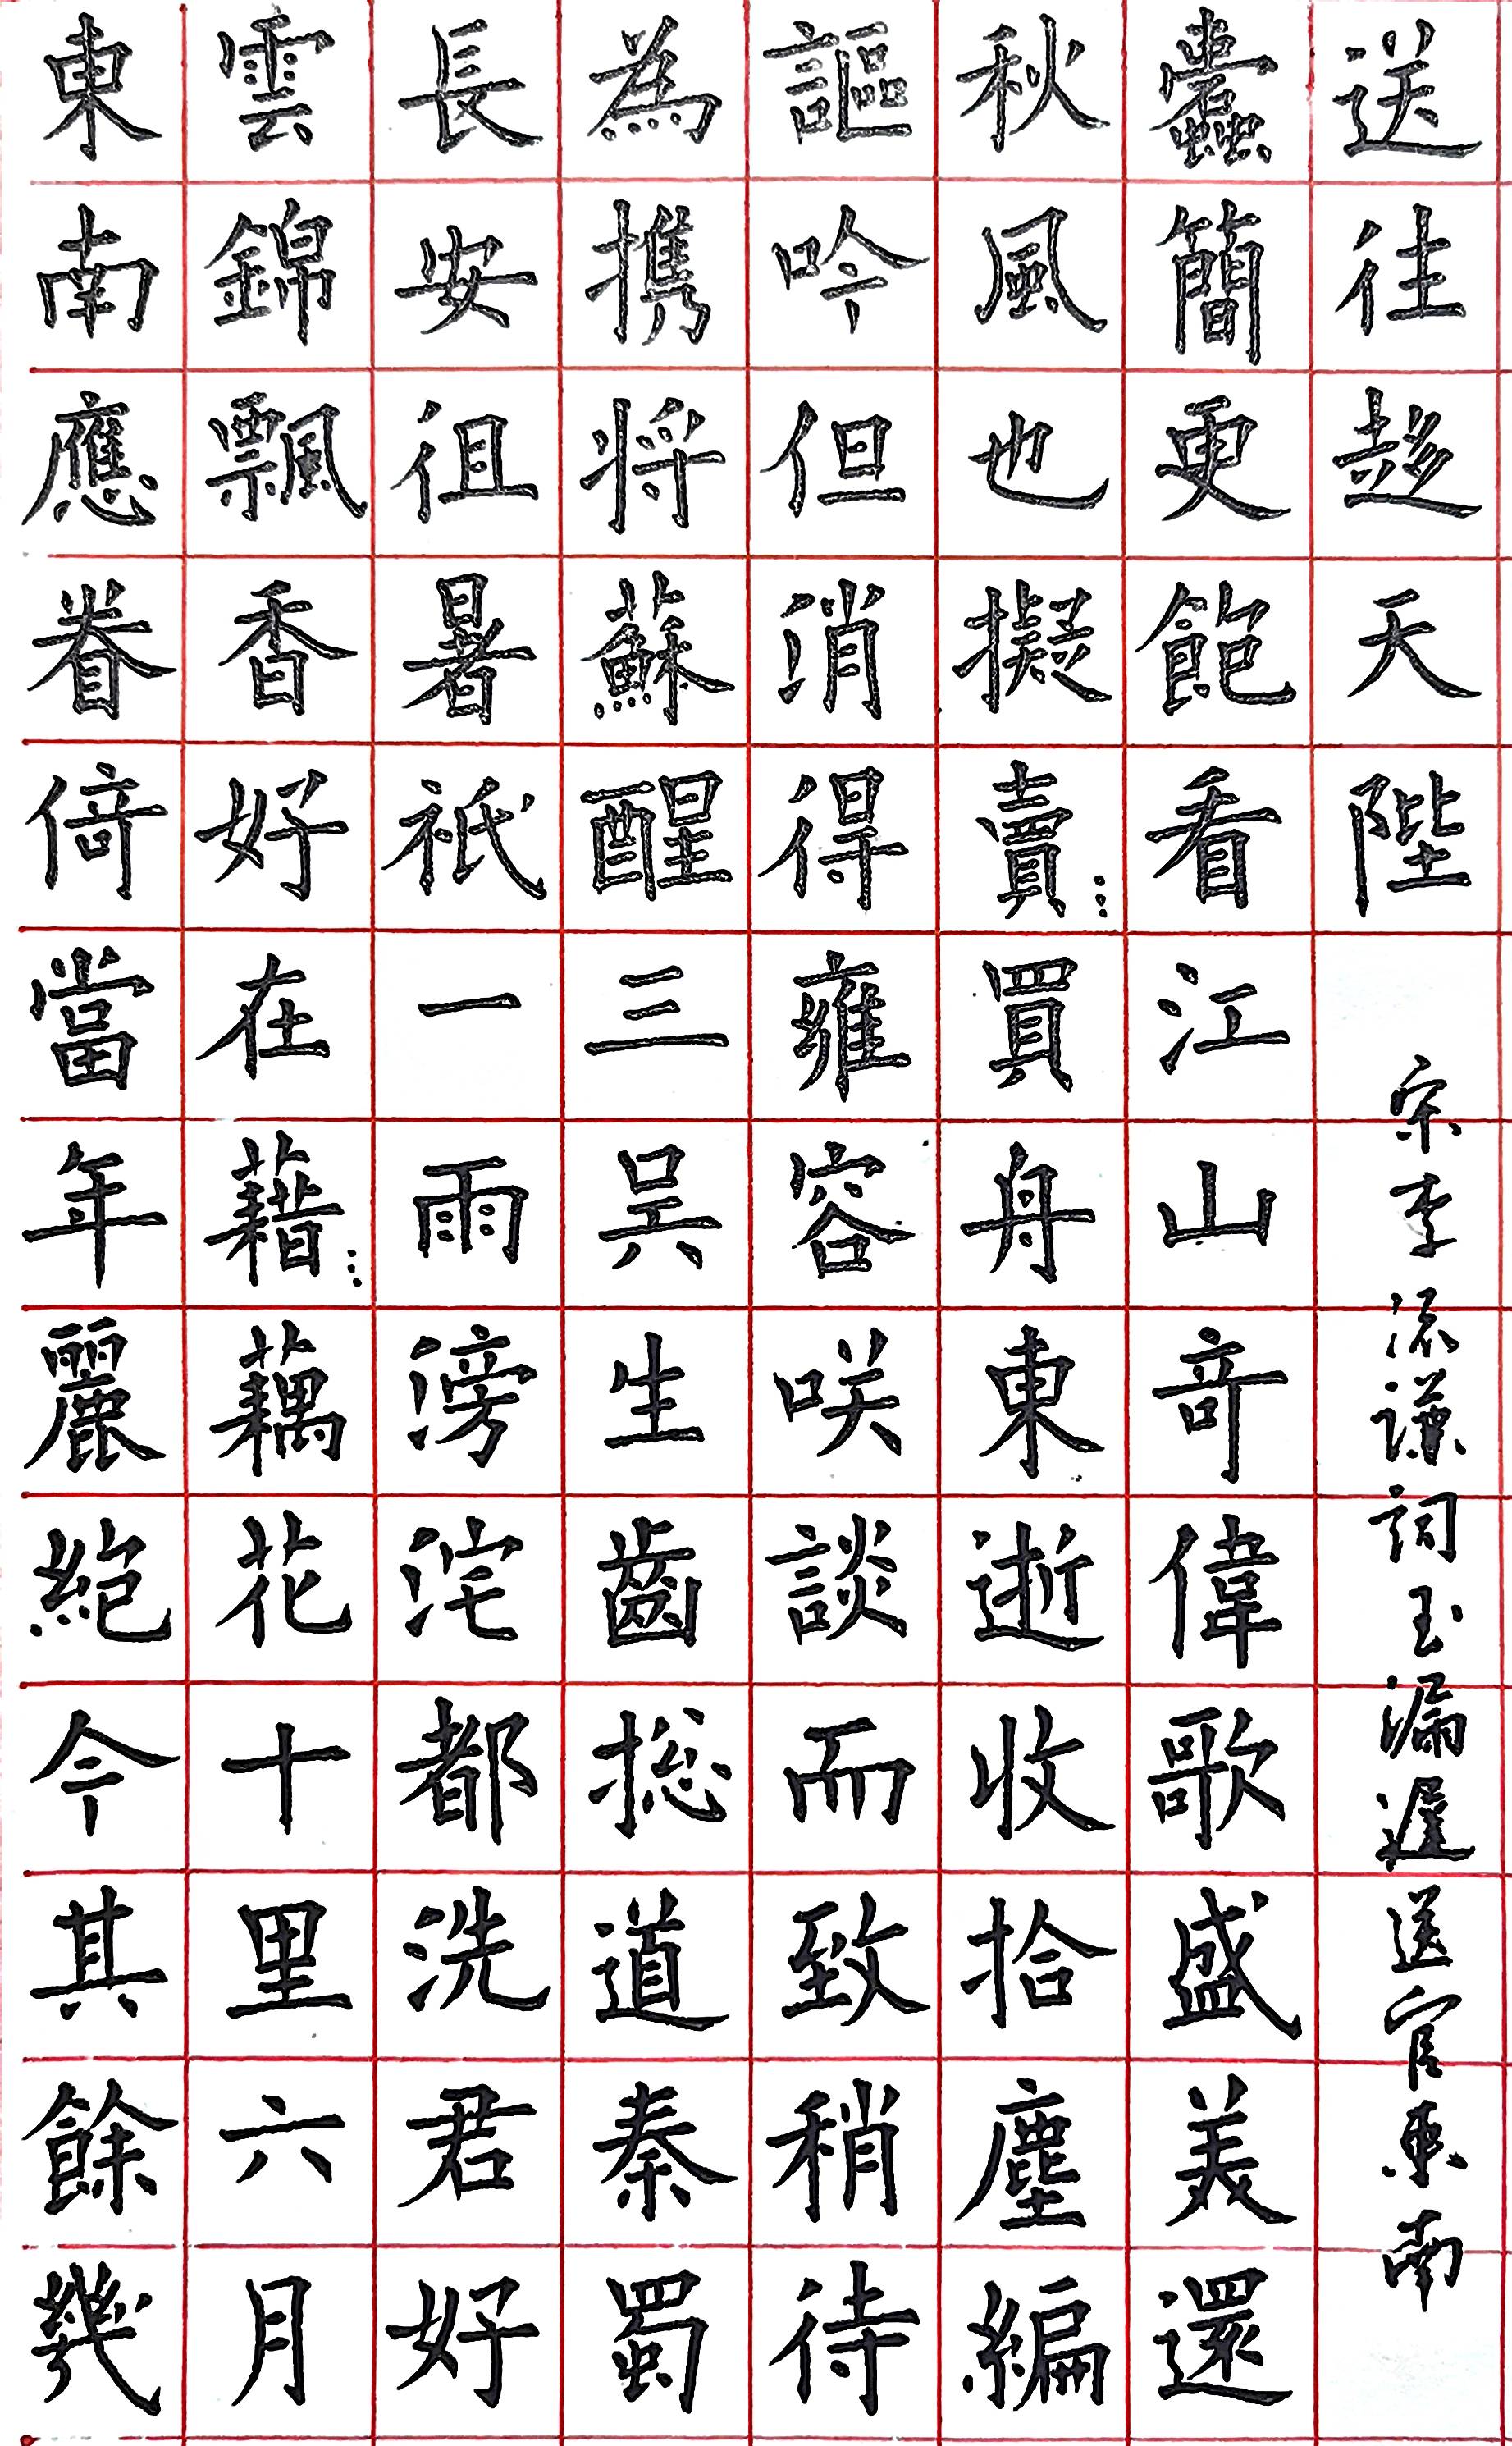 東南應眷倚當年麗絶今其餘幾
雲錦飄香好在藉⋮藕花十里六月
長安徂暑祇一雨滂沱都洗君好
為携将蘇醒三吴生齒捴道秦蜀
謳吟但消得雍容咲談而致稍待
秋風也擬賣⋮買舟東逝收拾塵編
蠹簡更飽看江山竒偉歌盛美還
送往趍天陛
宋李流謙詞玉漏遲送官東南